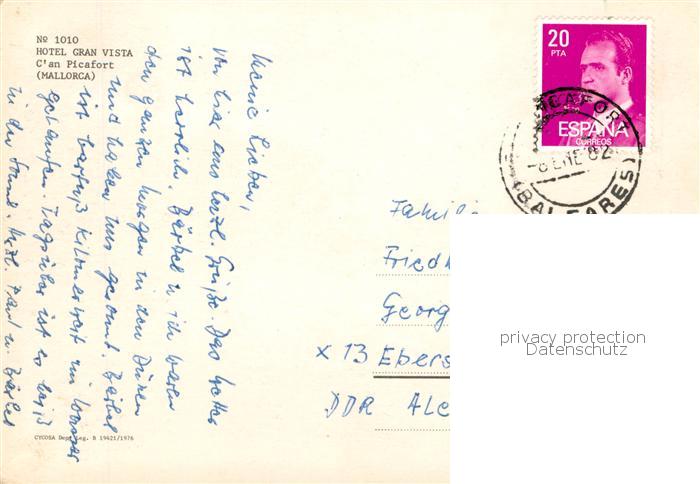 Nº 1010
HOTEL GRAN VISTA
C'an Picafort
(MALLORCA)
Meine Lieben,
von hier aus herzl. Grüße. Das Wetter
ist herrlich. Bärbel u. ich waren
den ganzen Morgen in den Dünen
und haben uns gesonnt. Bärbel
ist barfuß kilometerweit im Wasser
gelaufen. Tagsüber ist es heiß
in der Sonne. Herzl. Paul u. Bärbel
CYCOSA Dep. Leg. B 19421/1976
20
PTA
ESPAÑA
CORREOS
PICAFORT
-8 ENE 82
(BALEARES)
Familie
Friedh
Georg
x 13 Ebers
DDR Ale
privacy protection
Datenschutz